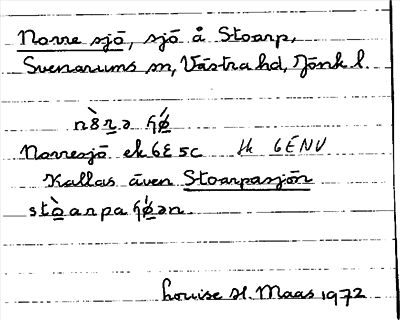 Norre sjö, sjö å Stoarp,
Svenarums sn, Västra hd, Jönk l.
nò̤rə ɧǿ
Norresjö ek 6E 5c tk 6ÉNV
Kallas även Stoarpasjön
stò̤arpa ɧǿən
Louise H. Maas 1972